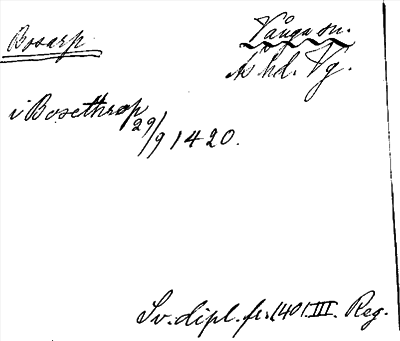 Bosarp
Vånga sn.
Ås hd. Vg.
i Bosethrop
29/9 1420.
Sv. dipl. fr. 1401 III. Reg.